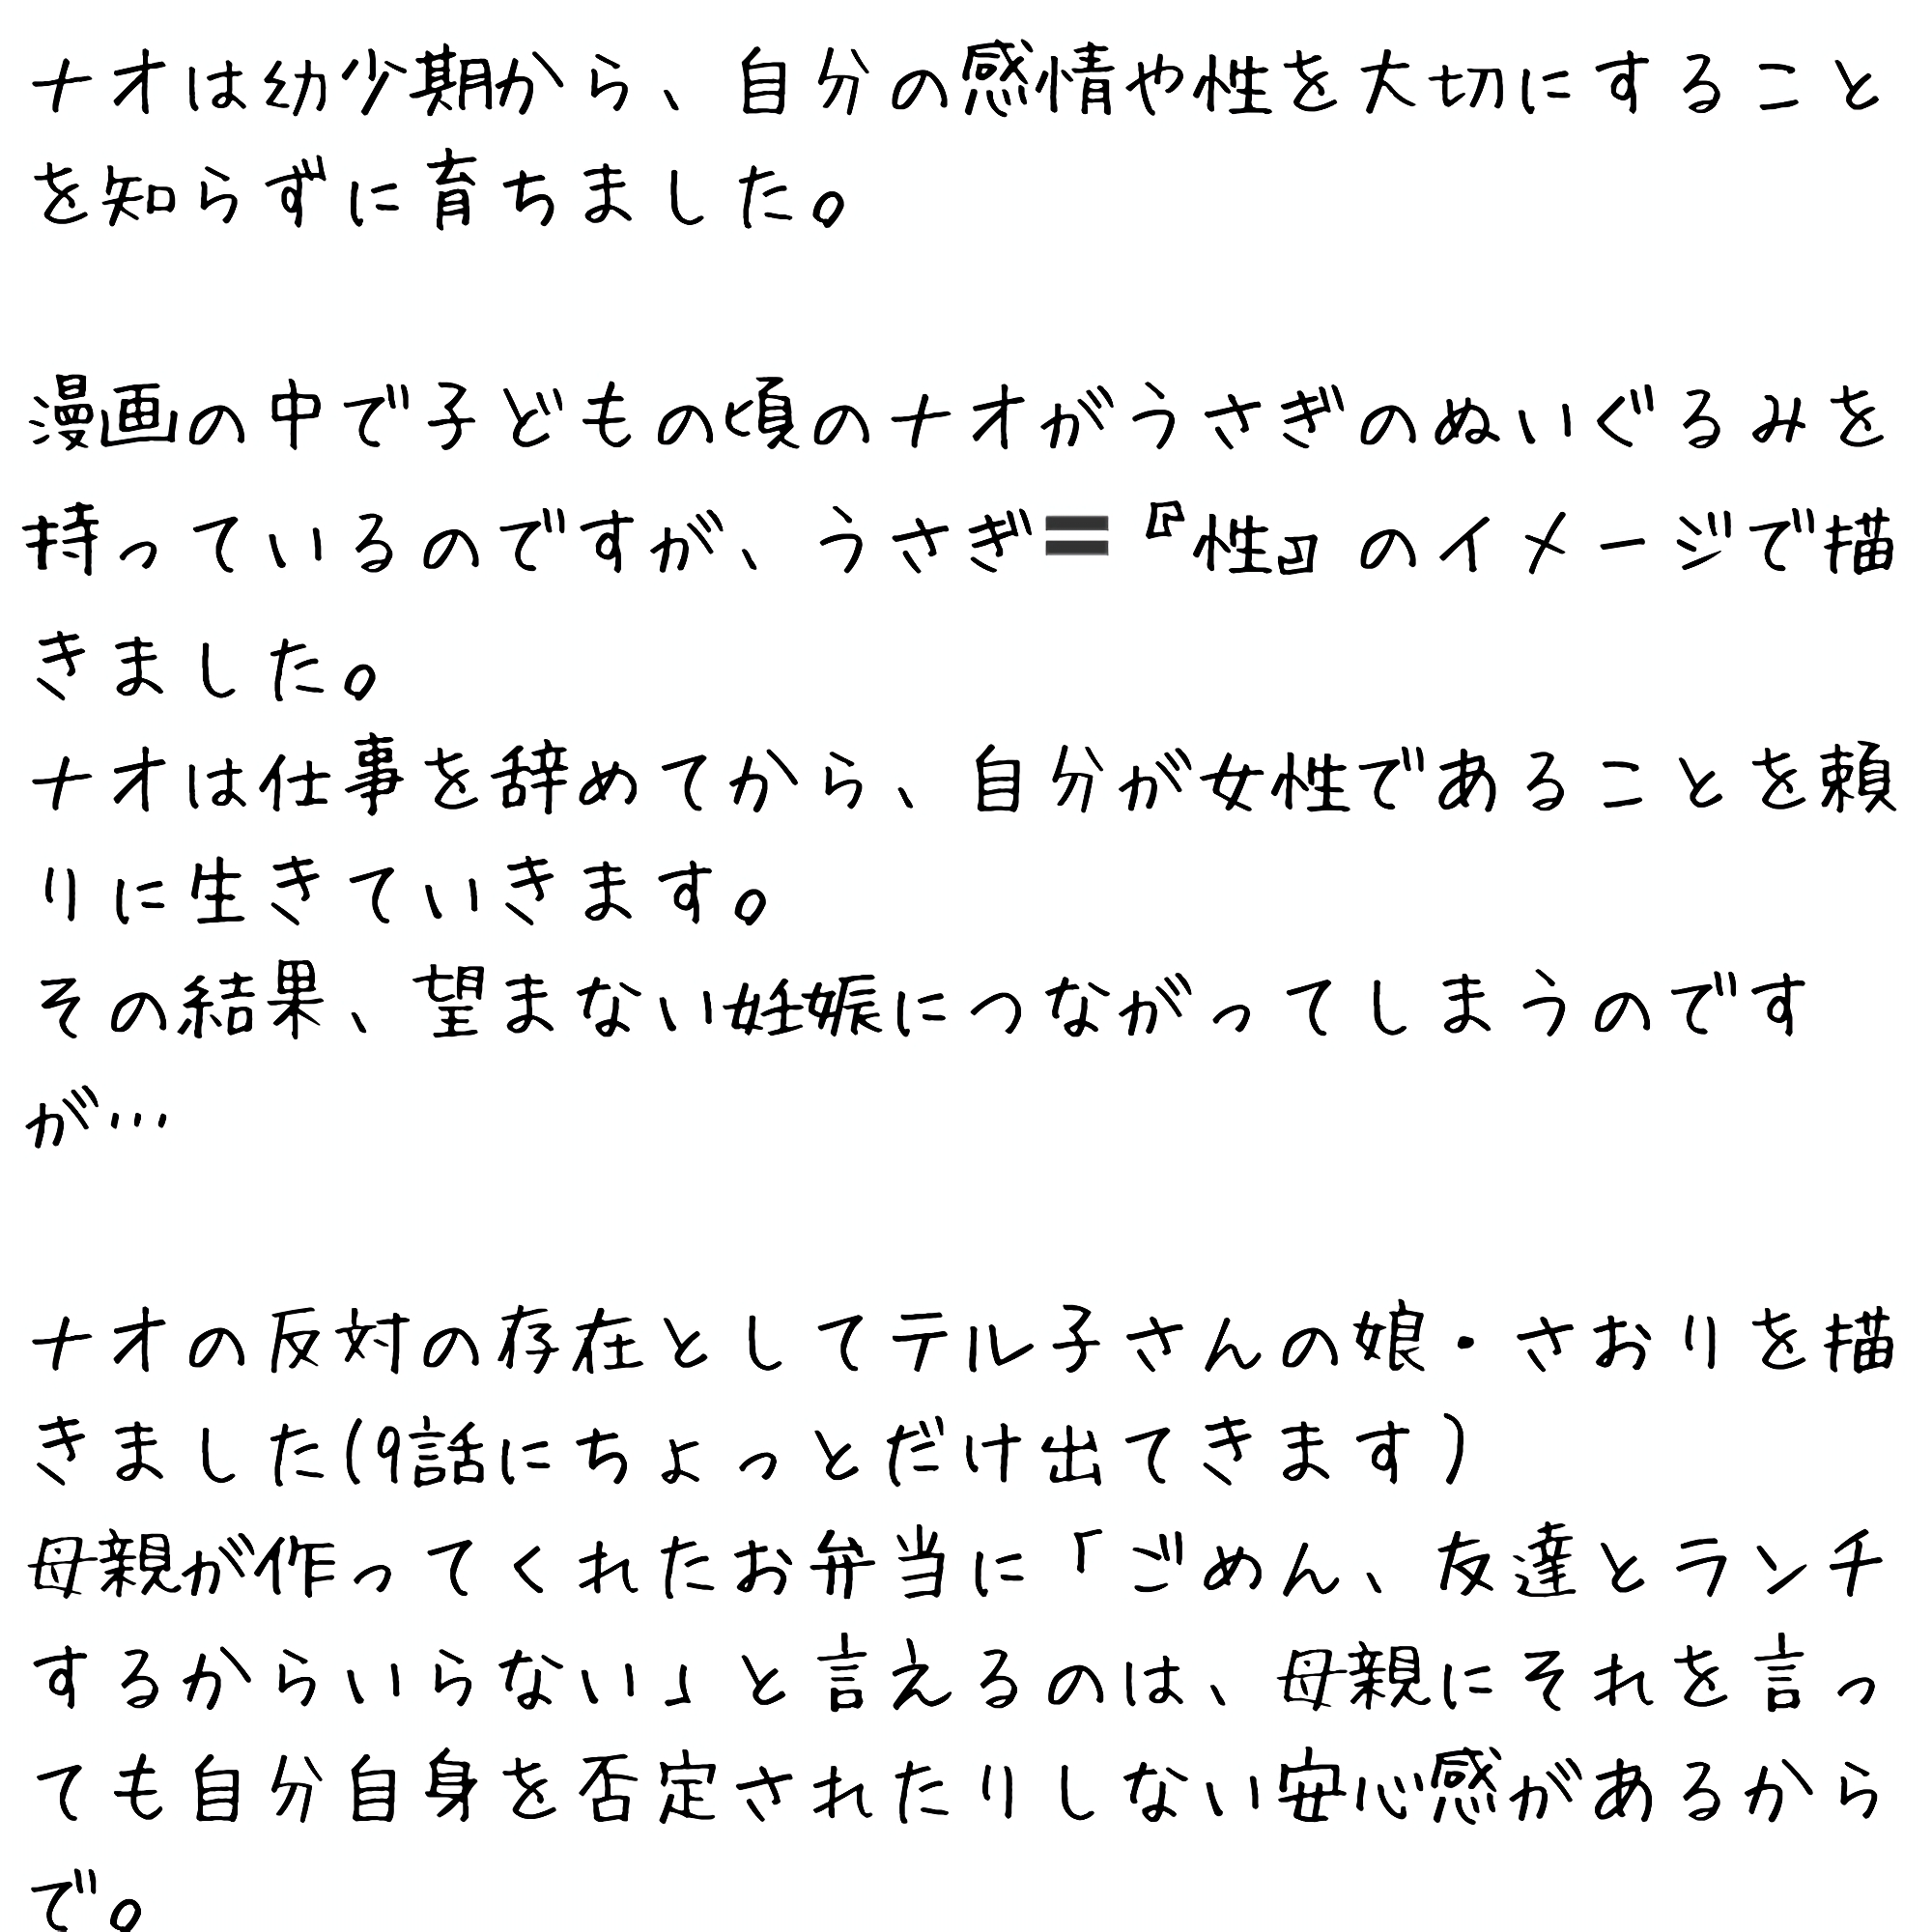 ナオは幼少期から、自分の感情や性を大切にすること
を知らずに育ちました。
漫画の中で子どもの頃のナオがうさぎのぬいぐるみを
持っているのですが、うさぎ＝『性』のイメージで描
きました。
ナオは仕事を辞めてから、自分が女性であることを頼
りに生きていきます。
その結果、望まない妊娠につながってしまうのです
が…
ナオの反対の存在としてテル子さんの娘・さおりを描
きました(9話にちょっとだけ出てきます)
母親が作ってくれたお弁当に「ごめん、友達とランチ
するからいらない」と言えるのは、母親にそれを言っ
ても自分自身を否定されたりしない安心感があるから
で。